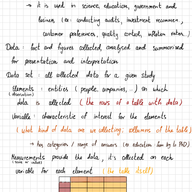 → it is used in science, education, government and
business (ex: conducting audits, investment recommen.,
customer preferences, quality control, inflation rates)
Data: fact and figures collected, analysed and summarised
for presentation and interpretation
Data set: all collected data for a given study
Elements: entities (people, companies, ...) on which
(observations)
data is collected (the rows of a table with data)
Variable: characteristic of interest for the elements
(what kind of data are we collecting; columns of the table)
Measurements provide the data, it's collected on each
variable for each element (the table itself)